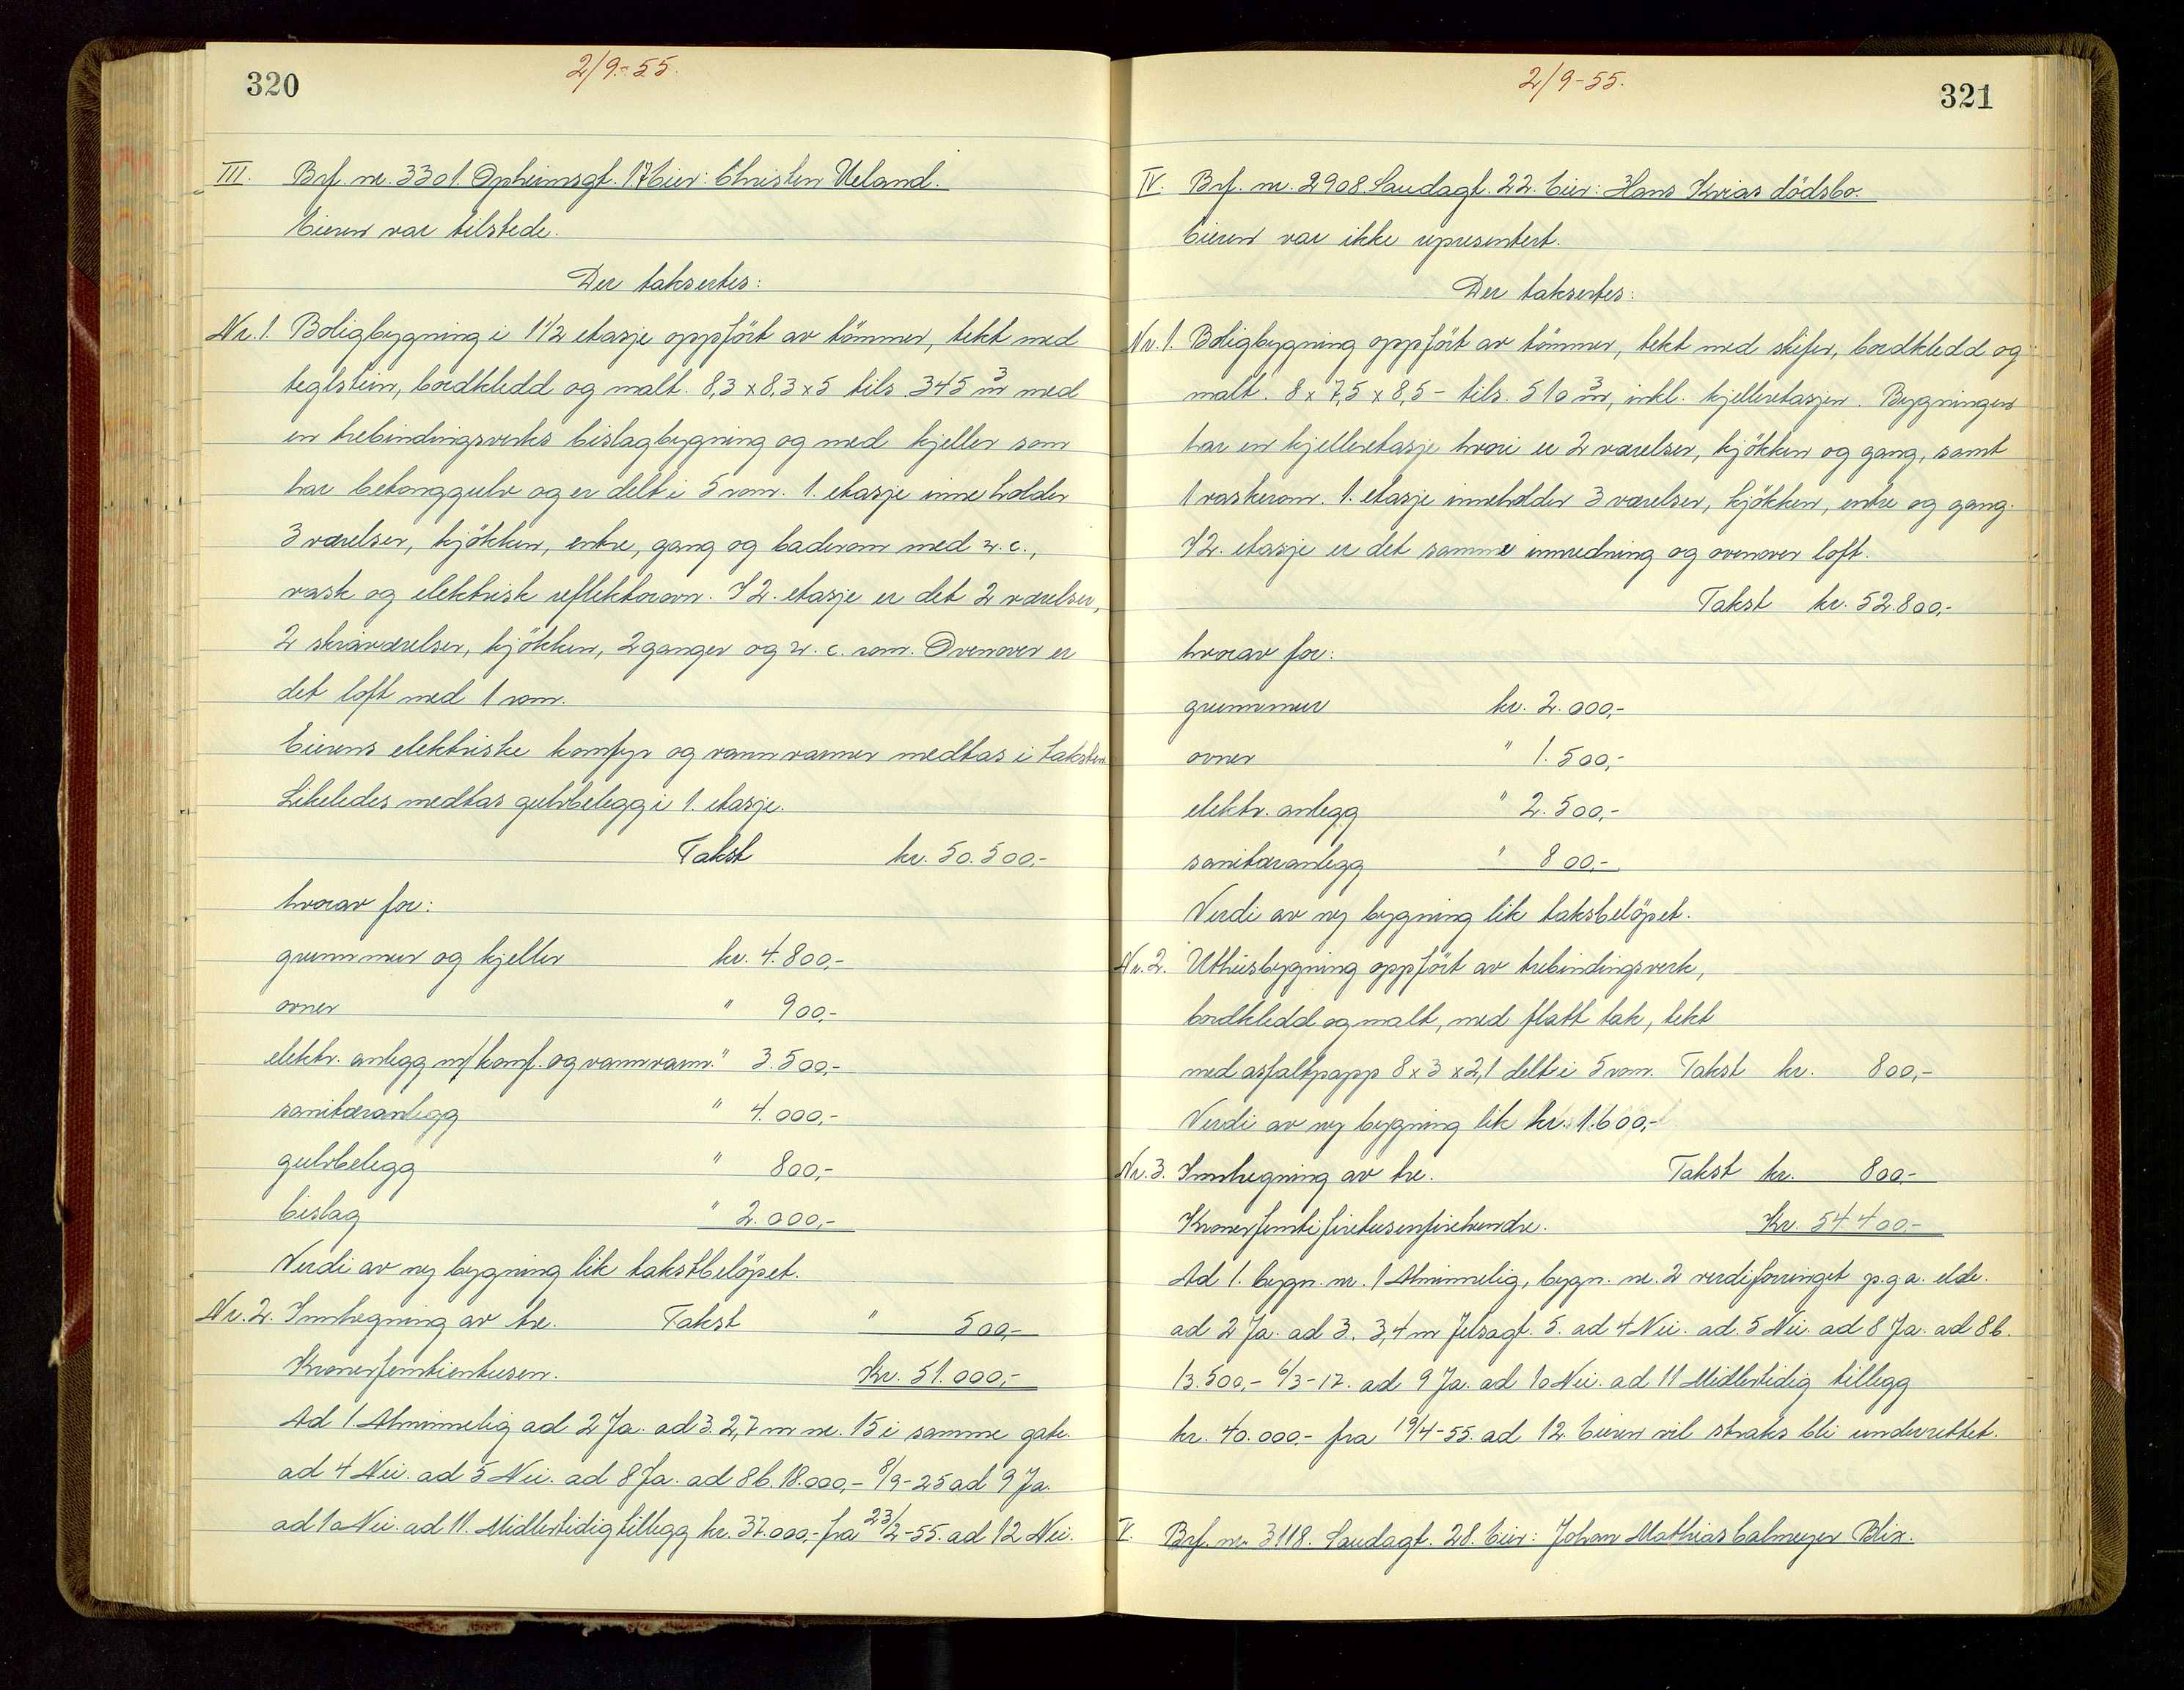 320
2/9-55.
III. Brf. nr. 3301. Opheimsgt. 17 Eier: Christen Ueland.
Eieren var tilstede.
Der taksertes:
Nr. 1. Boligbygning i 1 1/2 etasje oppfört av tömmer, tekt med
teglstein, bordkledd og malt. 8,3 x 8,3 x 5 tils. 345 m3 med
en trebindingsverks bislagbygning og med kjeller som
har betonggulv og er delt i 5 rom. 1. etasje inneholder
3 værelser, kjökken, entre, gang og baderom med w.c.,
vask og elektrisk reflektorovn. I 2. etasje er det 2 værelser,
2 skråværelser, kjökken, 2 ganger og w.c. rom. Ovenover er
det loft med 1 rom.
Eierens elektriske komfyr og vannvarmer medtas i taksten
Likeledes medtas gulvbelegg i 1. etasje.
Takst kr. 50.500,-
hvorav for:
grunnmur og kjeller kr. 4.800,-
ovner " 900,-
elektr. anlegg m/komf. og vannvarm. " 3.500,-
sanitæranlegg " 4.000,-
gulvbelegg " 800,-
bislag " 2.000,-
Verdi av ny bygning lik takstbelöpet.
Nr. 2. Innhegning av tre. Takst " 500,-
Kronerfemtientusen. Kr. 51.000,-
Ad 1. Alminnelig ad 2 Ja. ad 3. 2,7 m nr. 15 i samme gate.
ad 4 Nei. ad 5 Nei. ad 8 Ja. ad 8b. 18.000,- 8/9-25 ad 9 Ja.
ad 10 Nei. ad 11. Midlertidig tillegg kr. 37.000,- fra 23/2-55. ad 12 Nei.
2/9-55.
321
IV. Brf. nr. 2908 Saudagt. 22. Eier: Hans Kvias dödsbo.
Eieren var ikke representert.
Der taksertes:
Nr. 1. Boligbygning oppfört av tömmer, tekt med skifer, bordkledd og
malt. 8 x 7,5 x 8,5 - tils. 510 m3, inkl. kjelleretasjen. Bygningen
har en kjelleretasje hvori er 2 værelser, kjökken og gang, samt
1 vaskerom. 1. etasje inneholder 3 værelser, kjökken, entre og gang.
I 2. etasje er det samme innredning og ovenover loft.
Takst kr. 52.800,-
hvorav for:
grunnmur kr. 2.000,-
ovner " 1.500,-
elektr. anlegg " 2.500,-
sanitæranlegg " 800,-
Verdi av ny bygning lik taksbelöpet.
Nr. 2. Uthusbygning oppfört av trebindingsverk,
bordkledd og malt, med flatt tak, tekt
med asfaltpapp 8 x 3 x 2,1 delt i 5 rom. Takst kr. 800,-
Verdi av ny bygning lik kr. 1.600,-
Nr. 3. Innhegning av tre. Takst kr. 800,-
Kronerfemtifiretusenfirehundre. Kr. 54.400,-
Ad 1. bygn. nr. 1 Alminnelig, bygn. nr. 2 verdiforringet p.g.a. elde.
ad 2 Ja. ad 3. 3,4 m Jelsagt. 5. ad 4 Nei. ad. 5 Nei. ad 8 Ja. ad 8b.
13.500,- 6/3-17. ad 9 Ja. ad 10 Nei. ad 11 Midlertidig tillegg
kr. 40.000,- fra 19/4-55. ad 12. Eieren vil straks bli underrettet.
V. Brf. nr. 3118. Saudagt. 28. Eier: Johan Mathias Calmeyer Blix.